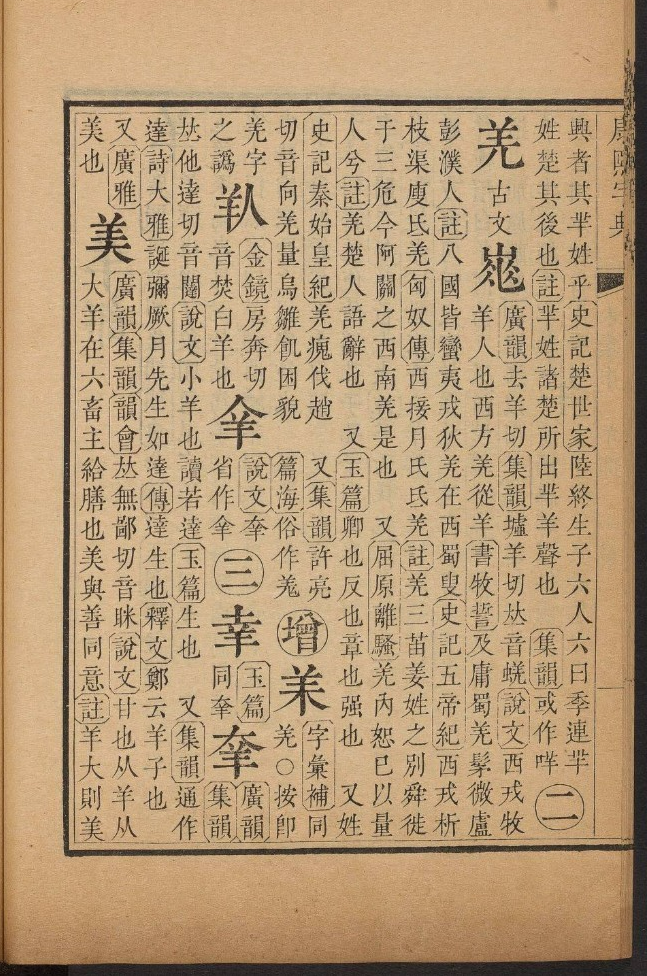 興者其羋姓乎史記楚世家陸終生子六人六曰季連羋
姓楚其後也註羋姓諸楚所出羋羊聲也 集韻或作咩 二
羌 古文
廣韻去羊切集韻墟羊切𠀤音蜣說文西戎牧
羊人也西方羌從羊書牧誓及庸蜀羌髳微盧
彭濮人註八國皆蠻夷戎狄羌在西蜀叟史記五帝紀西戎析
枝渠廋氏羌匈奴傳西接月氏氐羌註羌三苗姜姓之別舜徙
于三危今阿關之西南羌是也 又屈原離騷羌內恕已以量
人兮註羌楚人語辭也 又玉篇卿也反也章也强也 又姓
史記秦始皇紀羌瘣伐趙 又集韻許亮
切音向羌量鳥雛飢困貌 篇海俗作羗 增
字彙補同
羌○按卽
羌字
之譌
金鏡房奔切
音焚白羊也
說文羍
省作𦍒
三
玉篇
同羍
羍
廣韻
集韻
𠀤他達切音闥說文小羊也讀若達玉篇生也 又集韻通作
達詩大雅誕彌厥月先生如達傳達生也釋文鄭云羊子也
又廣雅
美也
美
廣韻集韻韻會𠀤無鄙切音眯說文甘也从羊从
大羊在六畜主給膳也美與善同意註羊大則美